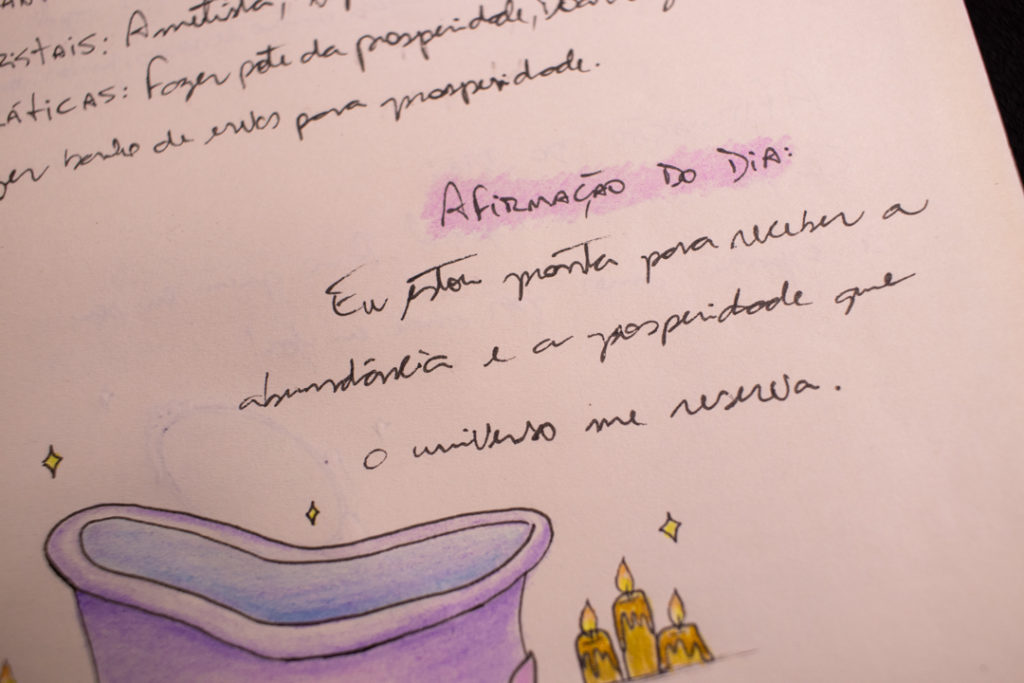 Ametista,
Práticas: Fazer pote da prosperidade,
banho de ervas para prosperidade.
Afirmação do Dia:
Eu estou pronta para receber a
abundância e a prosperidade que
o universo me reserva.